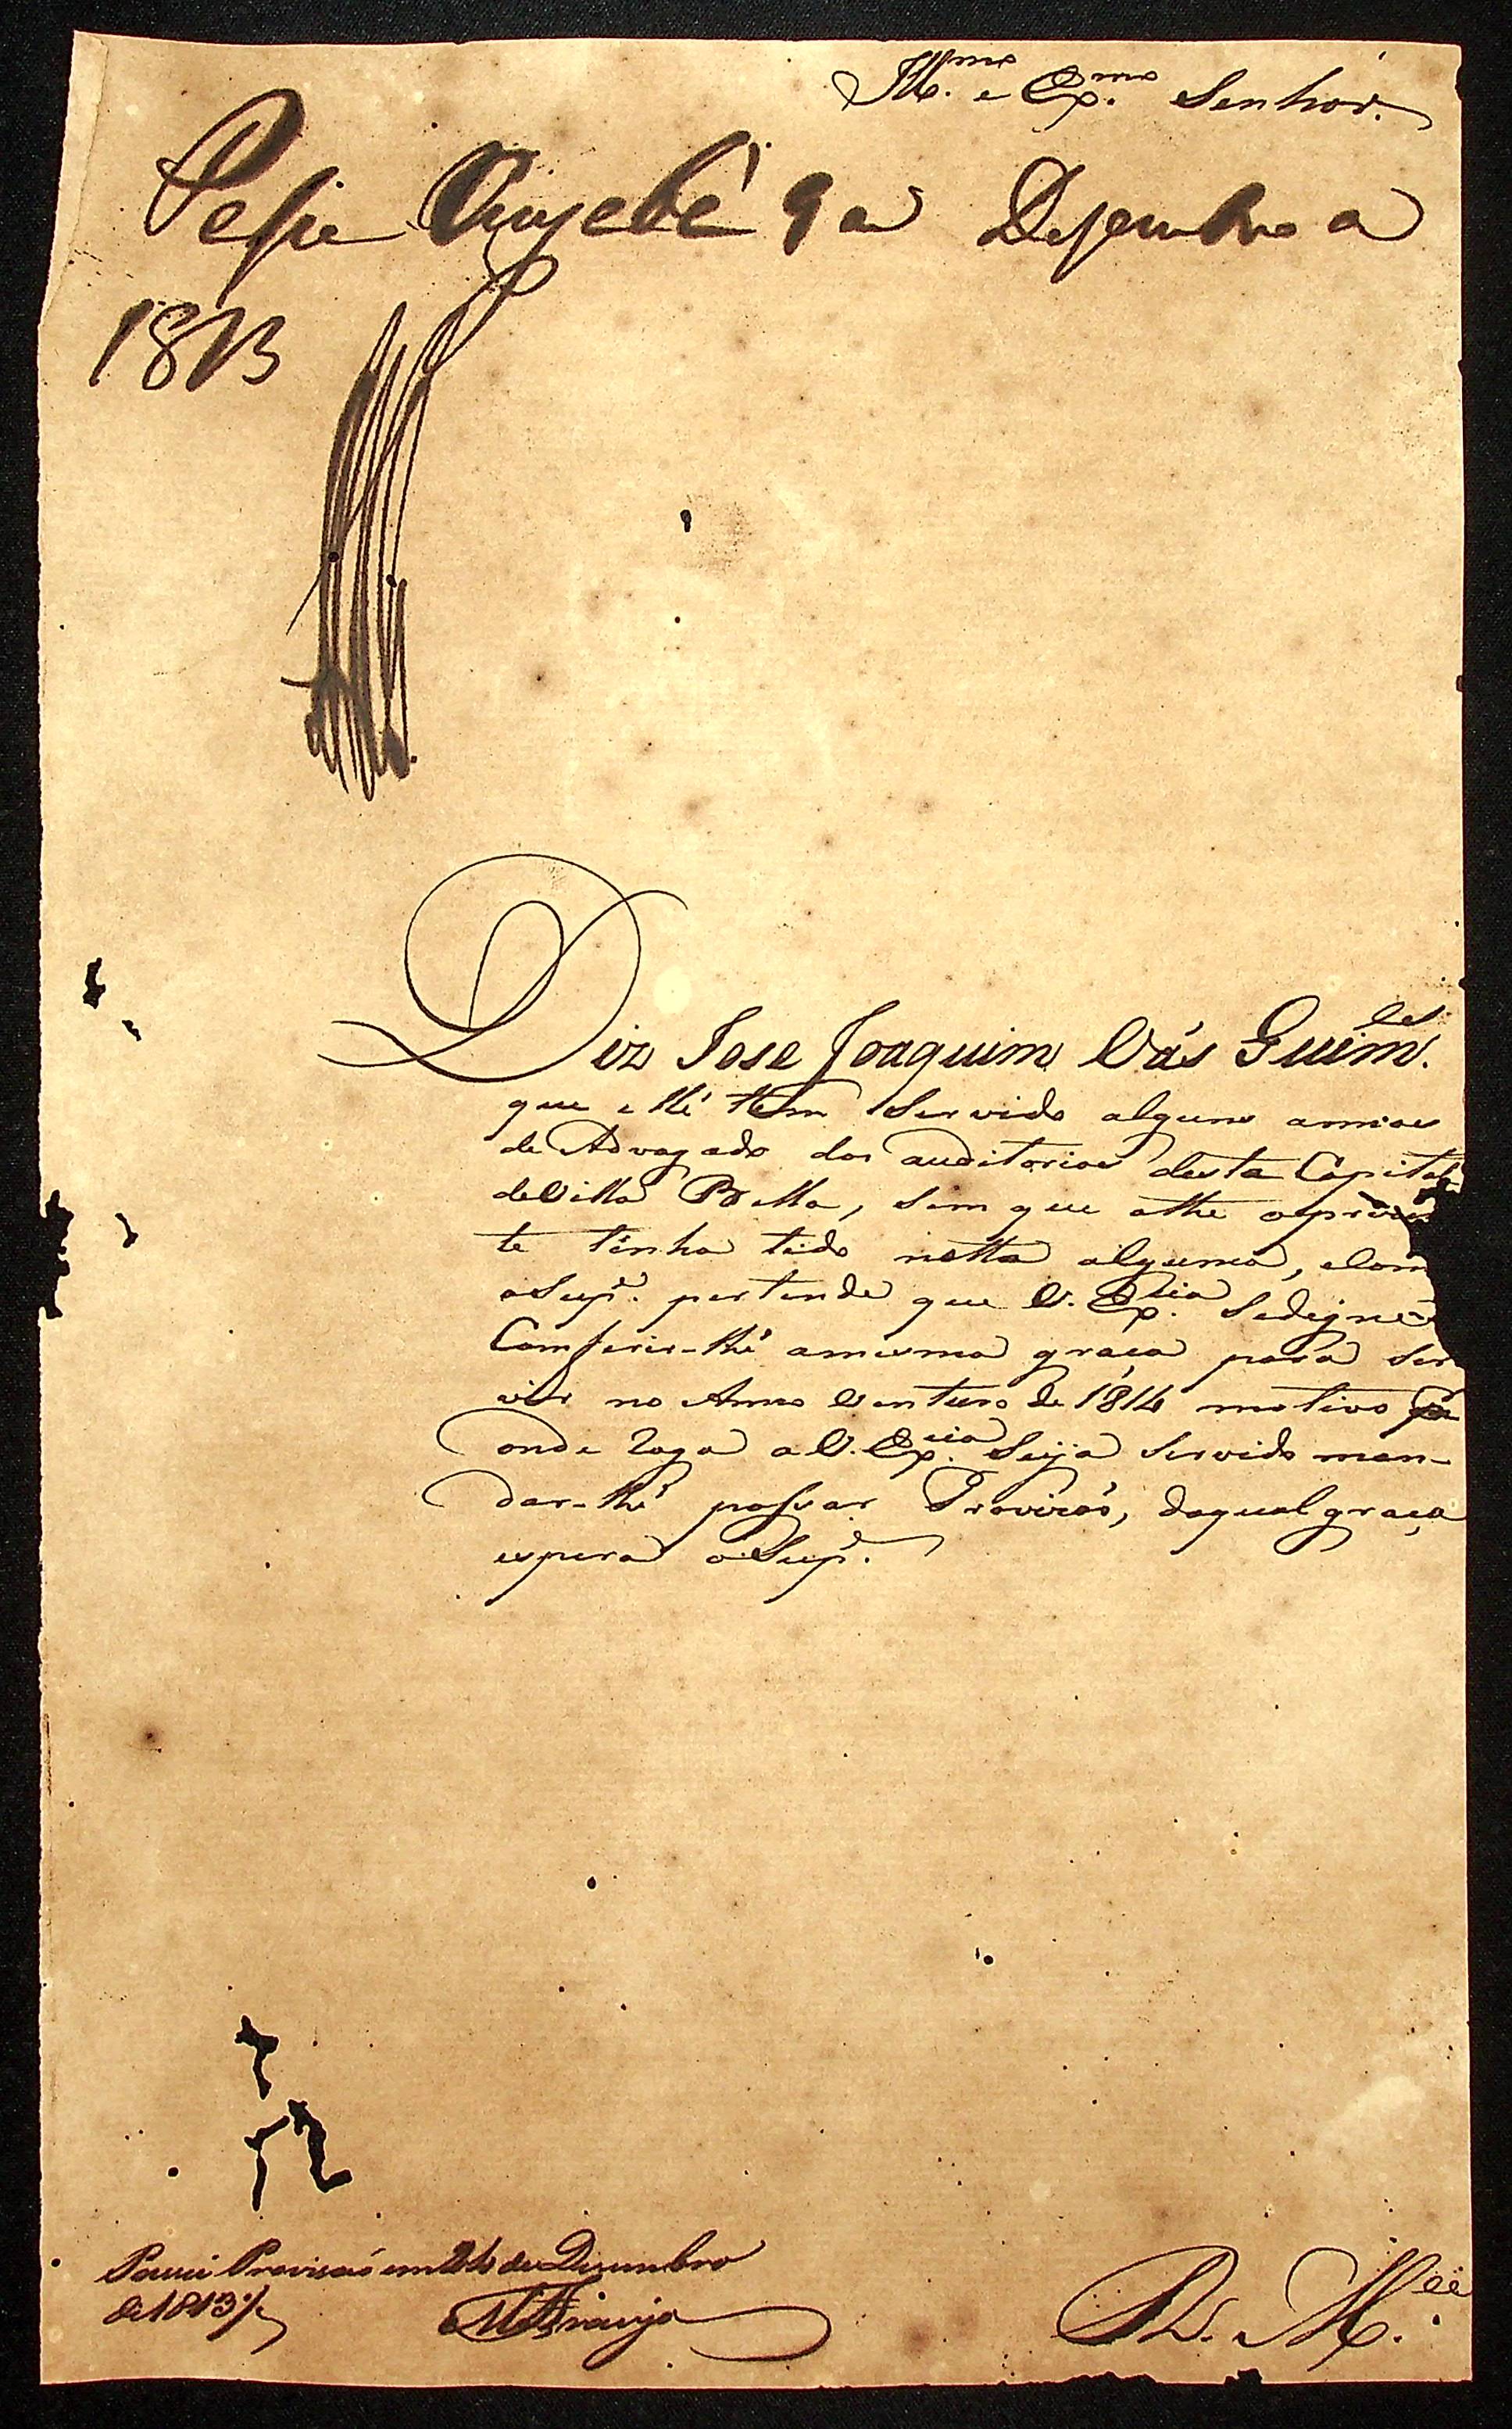 Ill.mo e Ex.mo Senhor.
Passe Cuyabá 9 de Dezembro de
1813
Diz Jose Joaquim Vás Guim.es
que elle tem servido alguns annos
de Advogado dos auditorios desta Capital
de Villa Bella, sem que athe o prezen
te tenha tido notta alguma, e com
o Sup.e pertende que V. Ex.cia se digne
Comferir-lhe a mesma graça para ser
vir no Anno vinturo de 1814 motivo
onde roga a V. Ex.cia Seja servido man-
dar-lhe passar Provizaõ, da qual graça
espera o Sup.e
R. M.ce
Passei Provisaõ em 24 de Dezembro
de 1813
Araujo